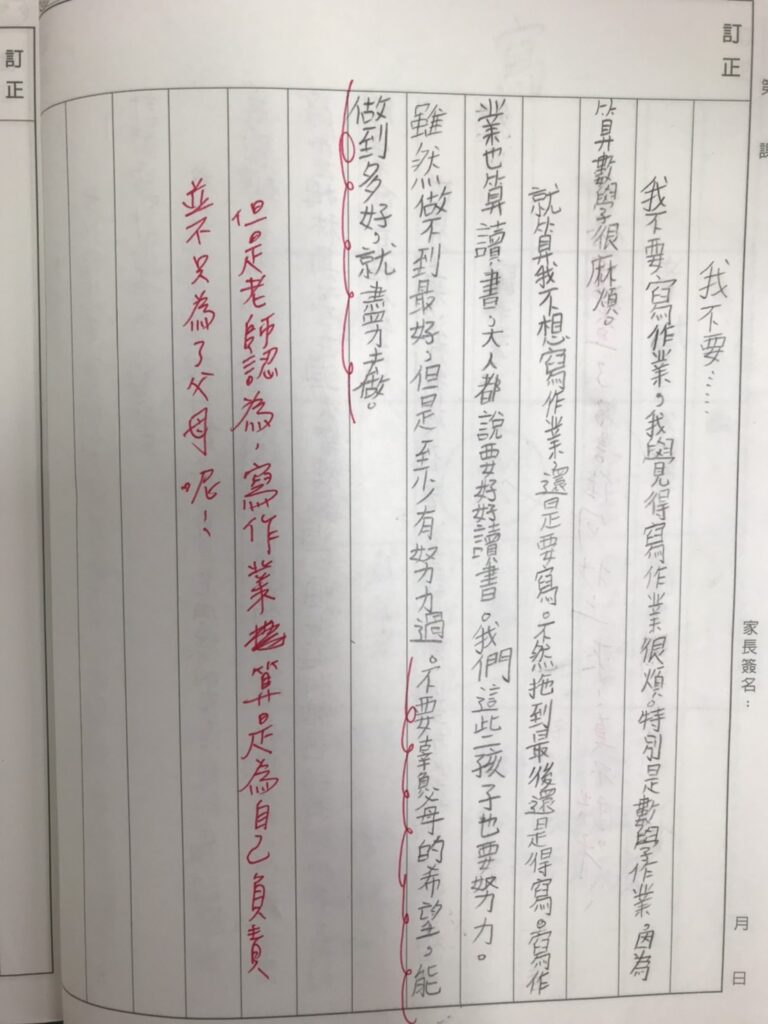 訂正
第
課
家長簽名：
月
日
我不要……
我不要寫作業，我覺得寫作業很煩。特別是數學作業，因為
算數學很麻煩。
就算我不想寫作業，還是要寫。不然拖到最後還是得寫。寫作
業也算讀書，大人都說要好好讀書。我們這些孩子也要努力。
雖然做不到最好，但是至少有努力過。不要辜負父母的希望，能
做到多好，就盡力去做。
但是老師認為，寫作業算是為自己負責
並不只為了父母呢！
訂正